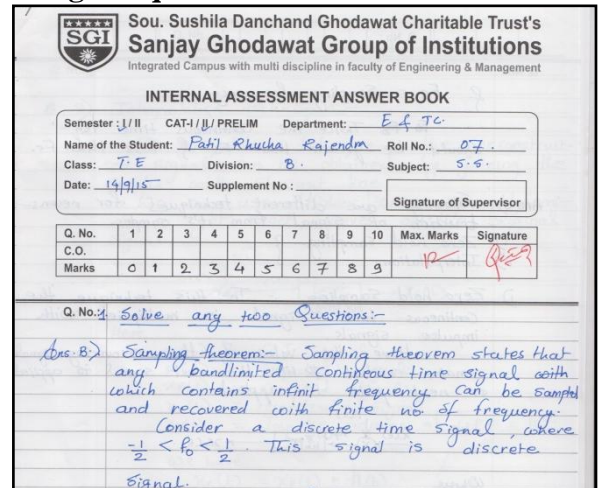 SGI
Sou. Sushila Danchand Ghodawat Charitable Trust's
Sanjay Ghodawat Group of Institutions
Integrated Campus with multi discipline in faculty of Engineering & Management
INTERNAL ASSESSMENT ANSWER BOOK
Semester : I / II CAT-I / II / PRELIM Department: E & TC.
Name of the Student: Patil Rhucha Rajendra Roll No.: 07.
Class: T.E Division: B. Subject: S.S.
Date: 14/9/15 Supplement No :
Signature of Supervisor
Q. No. 1 2 3 4 5 6 7 8 9 10 Max. Marks Signature
C.O.
Marks 0 1 2 3 4 5 6 7 8 9 12
Q. No.:1 Solve any two Questions:-
Ans. B.) Sampling theorem:- Sampling theorem states that
any bandlimited contineous time signal with
which contains infinit frequency can be sampled
and recovered with finite no of frequency.
Consider a discrete time signal, where
-1/2 < f₀ < 1/2. This signal is discrete
signal.